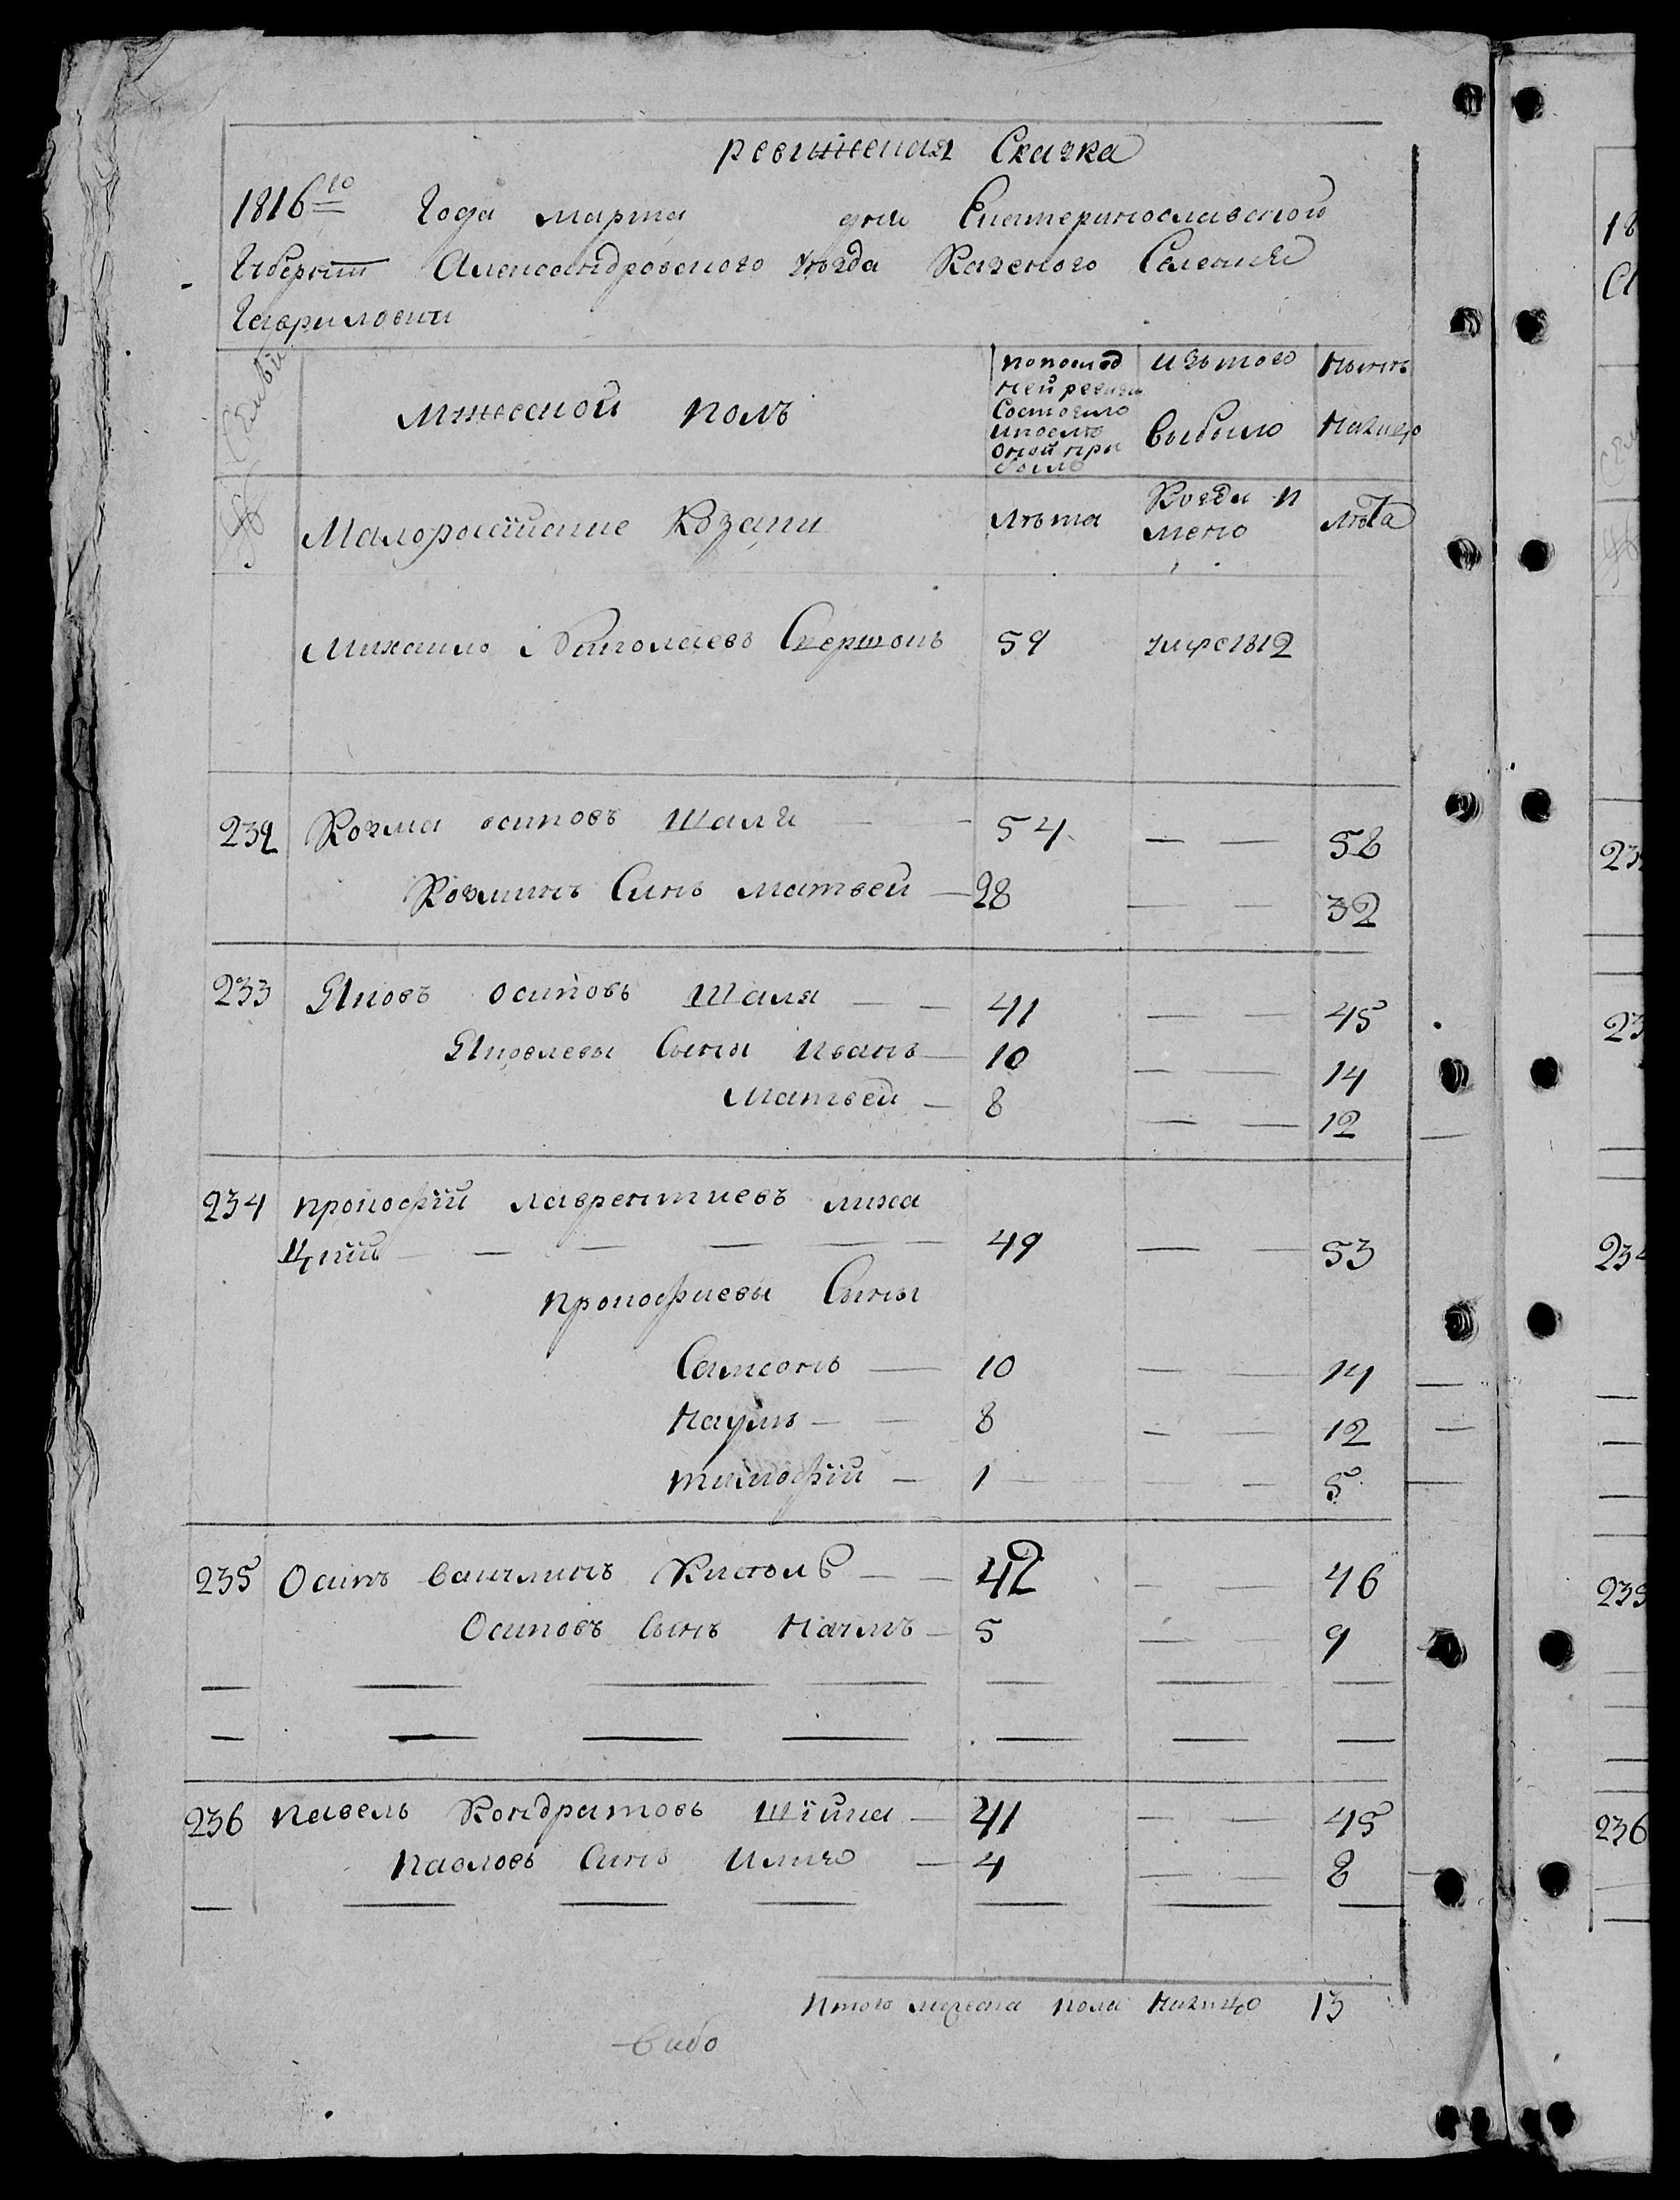 ревижская Сказка
1816го Года марта дня Екатеринославской
Губернии Александровского уезда Казеного Селения
Гавриловки
Мужеской полъ
№ Семьи
по послед
ней ревизи
Состояло
и после
оной при
было
изъ того
выбыло
Ныне
налицо
Малоросийские Козаки
Лѣта
Когда и
мено
Лѣта
Михайло Николаевъ Скершонъ 59 умре 1812
232 Козма осиповъ Шаля 54 58
Козминъ Синъ матвей 28 32
233 Яковъ осиповъ Шаля 41 45
Яковлевы Сыны иванъ 10 14
Матвей 8 12
234 прокофий лаврентиевъ лиха
цкий 49 53
прокофиевы Сыны
Самсонъ 10 14
Наумъ 8 12
тимофий 1 5
235 Осипъ 42 46
Осиповъ Сынъ Наумъ 5 9
236 павелъ Кондратовъ 41 45
павловъ Синъ илия 4 8
Итого мужеска пола налицо 13
выбо
18
23
234
235
236